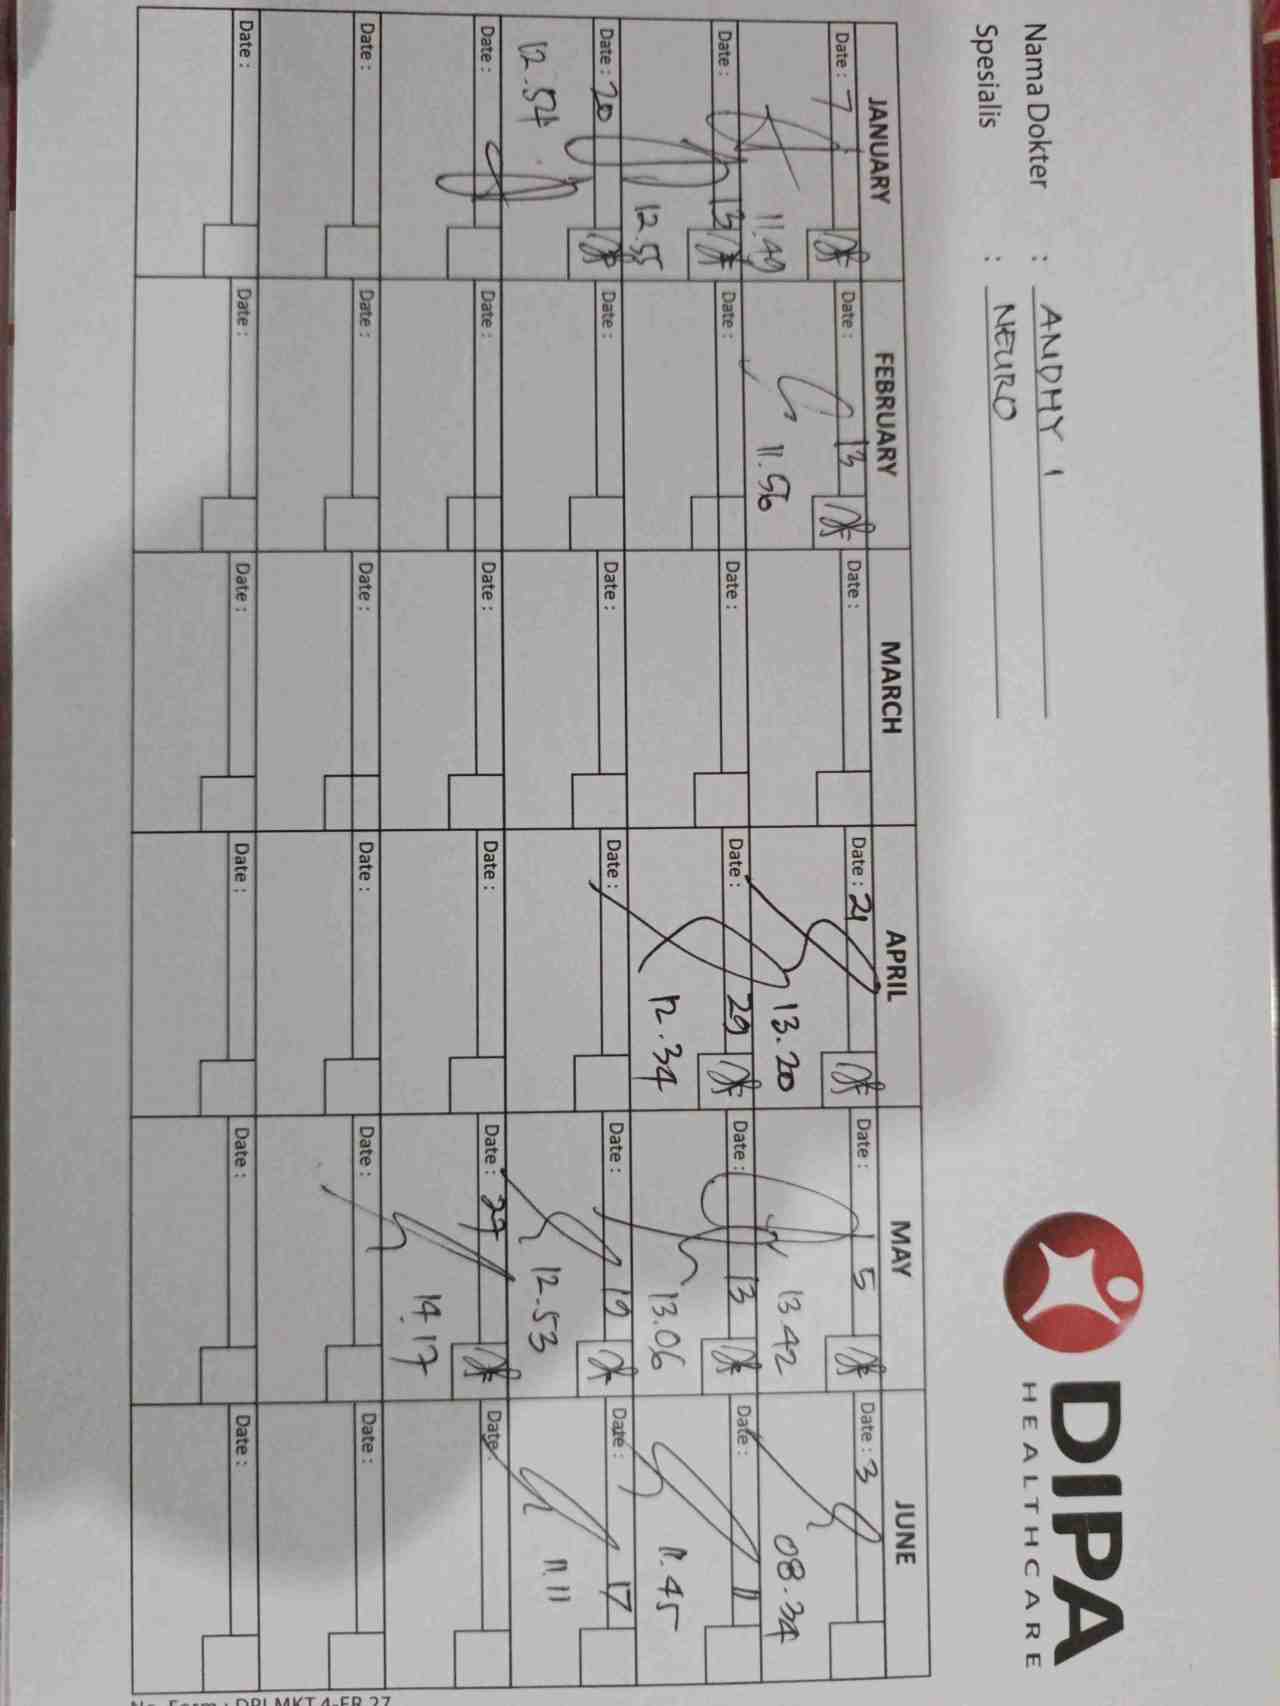 DIPA
HEALTHCARE
Nama Dokter : ANDHY 1
Spesialis : NEURO
JANUARY FEBRUARY MARCH APRIL MAY JUNE
Date : 7 Date : 13 Date : Date : 21 Date : 5 Date : 3
11.49 11.56 13.20 13.42 08.34
Date : 13 Date : Date : Date : 29 Date : 13 Date : 11
12.55 12.34 13.06 11.45
Date : 20 Date : Date : Date : Date : 19 Date : 17
12.54 12.53 11.11
Date : Date : Date : Date : Date : 27 Date :
14.17
Date : Date : Date : Date : Date : Date :
Date : Date : Date : Date : Date : Date :